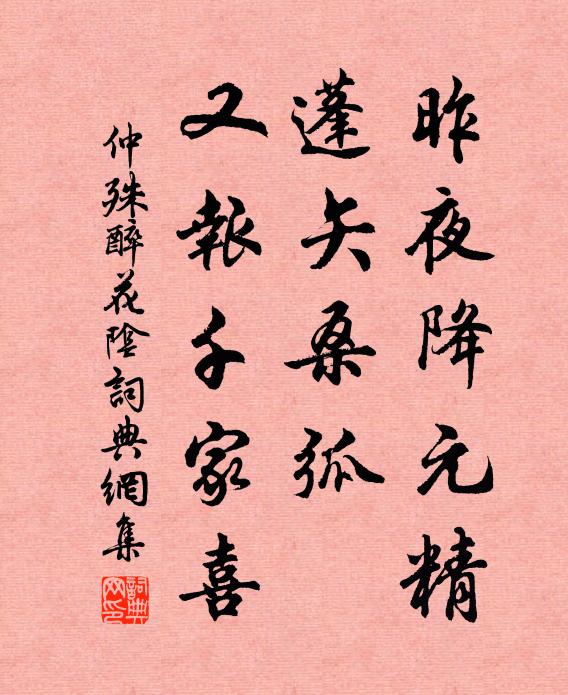 昨夜降元精
蓬矢桑弧
又報千家喜
仲殊醉花陰詞典網集
詞典网印